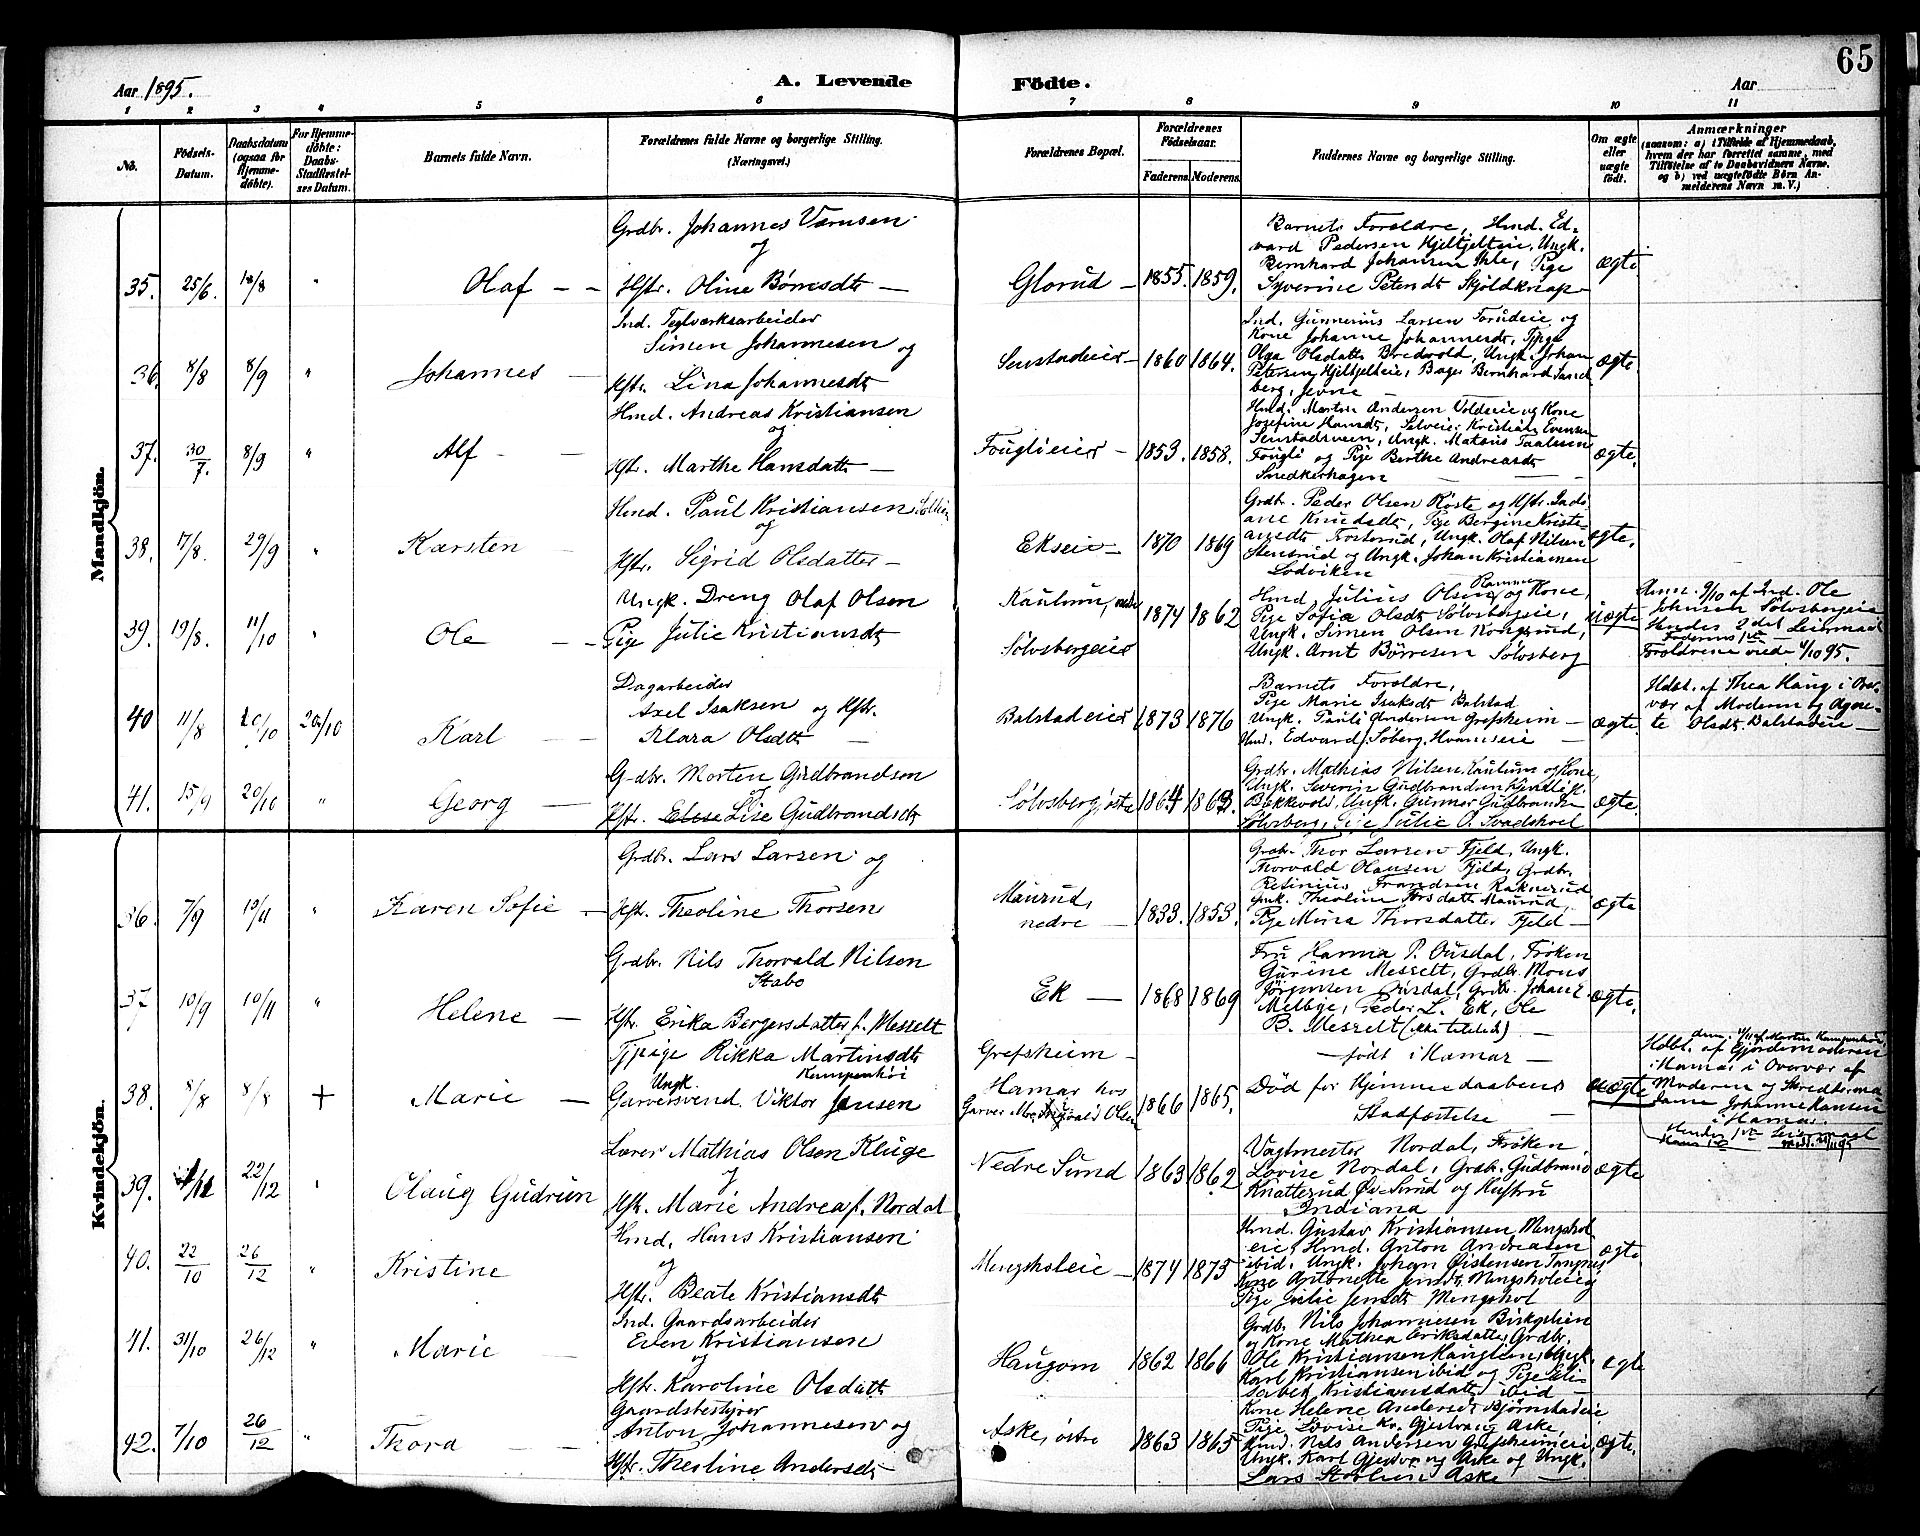 65
Aar 1895.
A. Levende
Födte.
Aar
1 2 3 4 5 6 7 8 9 10 11
No.
Födsels-Datum.
Daabsdatum (ogsaa for Hjemmedöbte).
For Hjemmedöbte: Daabs-Stadfæstelses Datum.
Barnets fulde Navn.
Forældrenes fulde Navne og borgerlige Stilling. (Næringsvei.)
Forældrenes Bopæl.
Forældrenes Födselsaar.
Faderens. Moderens.
Faddernes Navne og borgerlige Stilling.
Om ægte eller uægte födt.
Anmærkninger
(saasom: a) i Tilfælde af Hjemmedaab, hvem der har forrettet samme, med Tilföielse af to Daabsvidners Navne, og b) ved uægtefödte Börn Anmelderens Navn m. V.)
Mandkjön.
Grdbr. Johannes Værnsen
og
35. 25/6. 18/8 " Olaf — — Hstr. Oline Børresdtr —
Glorud — 1855. 1859.
Barnets Forældre, Hmd. Ed-
vard Pedersen Hjeltjelteie, Ungk.
Bernhard Johansen Ihle, Pige
Syverine Petersdtr Skjöldknap —
ægte
Ind. Teglværksarbeider
Simen Johannesen og
36. 8/8 8/9 " Johannes — Hstr. Lina Johannesdtr
Senstadeier — 1860 1864.
Ind. Gunnerius Larsen Forudeie og
Kone Johanne Johannesdtr, Tjpige
Olga Olsdatter Bredvold, Ungk. Johan
Petersen Hjeltjelteie, Bager Bernhard Sand-
berg, Jevne —
ægte.
Hmd. Andreas Kristiansen
og
37. 30/7. 8/9 " Alf — Hstr. Marthe Hansdatter —
Fouglieier — 1853. 1858.
Hmd. Martin Andersen Voldseie og Kone
Josefine Hansdtr, Selveier Kristian Evensen
Senstadsveen, Ungk. Mataus Paalsen
Fougli og Pige Berthe Andreasdtr
Snedkerhagen —
ægte.
Hmd. Paul Kristiansen
og
38. 17/8. 29/9 " Karsten — Hstr. Sigrid Olsdatter —
Ekseie — 1870 1869
Grdbr. Peder Olsen Röste og Hstr. Indi-
ane Knudsdtr, Pige Bergine Kristi-
ansdtr Fosterud, Ungk. Olaf Nilsen
Stensrud og Ungk. Johan Kristiansen
Lodviken
ægte.
Ungk. Dreng Olaf Olsen
39. 19/8. 11/10 " Ole — Pige Julie Kristiansdtr
Kaulum, nedre
Sölvsbergeier
1874 1862
Hmd. Julius Olsen og Kone,
Pige Sofie Olsdtr Sölvsbergeie,
Ungk. Simen Olsen Kongsrud,
Ungk. Arnt Börresen Sölvsberg
uægte
Anm. 9/10 af Ind. Ole
Johnsen Sölvsbergeie
Hendes 2det Leiermaal
Faderens 1ste —
Forældrene viede 9/10 95.
Dagarbeider
Axel Isaksen og Hstr.
40 11/8 20/10 20/10 Karl — Klara Olsdtr —
Balstadeier 1873 1876
Barnets Forældre,
Pige Marie Isaksdtr Balstad
Ungk. Pauli Andersen Grefsheim —
Hmd. Edvard Söberg, Hvamseie —
ægte.
Hdbt. af Thea Haug i Over-
vær af Moderen og Agne-
te Olsdtr Balstadeie —
Grdbr. Morten Gudbrandsen
og
41. 15/9 20/10 " Georg — Hstr. Elise Lise Gudbrandsdtr
Sölvsberg, östre 1864 1863.
Grdbr. Mathias Nilsen Kaulum og Kone,
Ungk. Severin Gudbrandsen Lundlik.
Bakkevold, Ungk. Gunnar Gudbrandsen
Sölvsberg, Pige Julie O. Svadskoel
ægte.
Kvindekjön.
Grdbr. Lars Larsen og
36. 7/9 10/11 " Karen Sofie — Hstr. Theoline Thorsen
Maurud, nedre — 1833. 1853.
Grdbr. Thor Larsen Fjeld, Ungk.
Thorvald Olausen Fjeld, Grdbr.
Retinius Frandsen Raknerud
Gmk. Theoline Torsdatter Maurud,
Pige Mina Thorsdatter Fjeld —
ægte
Grdbr. Nils Thorvald Nilsen
Stabo
37 10/9 10/11 " Helene — Hstr. Erika Bergersdatter f. Messelt
Ek — 1868 1869
Fru Hanna P. Ousdal, Fröken
Gurine Messelt, Grdbr. Mons
Jörgensen Ousdal, Grdbr. Johan E.
Melbye, Peder L. Ek, Ole
B. Messelt (ikke tilstede) —
ægte.
Tjpige Rikka Martinsdtr
Kampenhöi
Ungk.
38. 8/8 8/8 + Marie — Garversvend Viktor Jensen
Grefsheim —
Hamar hos
Garver Olsen
1866 1865.
— födt i Hamar —
Död för Hjemmedaabens
Stadfæstelse —
uægte
Hdbt. af Gjordemoderen
i Hamar i Overvær af
Moderen og Skrædderma-
dame Johanne Hansen
i Hamar.
Hendes 1ste Leiermaal
Lærer Mathias Olsen Kluge
og
39. 22/12 " Olaug Gudrun Hstr. Marie Andrea f. Nordal
Nedre Sund — 1863 1862
Vagtmester Nordal, Fröken
Lovise Nordal, Grdbr. Gudbrand
Knatterud Øv. Sund og Hustru
Indiana
ægte
Hmd. Hans Kristiansen
og
40. 22/10 26/12 " Kristine Hstr. Beate Kristiansdtr
Mengsholeie — 1874 1875
Hmd. Gustav Kristiansen Mengshol-
eie, Hmd. Anton Andreasen
ibid. Ungk. Johan Øistensen Tangnes
Kone Antonette Jensdtr Mengsholeie og
Pige Julie Jensdtr Mengshol
ægte
Ind. Gaardsarbeider
Even Kristiansen
og
41. 31/10 26/12 " Marie — Hstr. Karoline Olsdatter
Haugom 1862 1866
Grdbr. Nils Johannesen Birkelien
og Kone Mathea Eriksdatter, Grdbr.
Ole Kristiansen Hauglien, Ungk.
Karl Kristiansen ibid og Pige Eli-
sabet Kristiansdatter ibid —
ægte
Gaardsbestyrer
Anton Johannesen og
42. 7/10 26/12 " Thora — Hstr. Theoline Andersdtr
Aske, östre 1863 1865
Kone Helene Andersdtr Bjørnstadeie
Pige Lovise K. Gjestvang Aske,
Hmd. Nils Andersen Grefsheimeie,
Ungk. Karl Gjestvang Aske og Ungk.
Lars Stovlien Aske —
ægte.